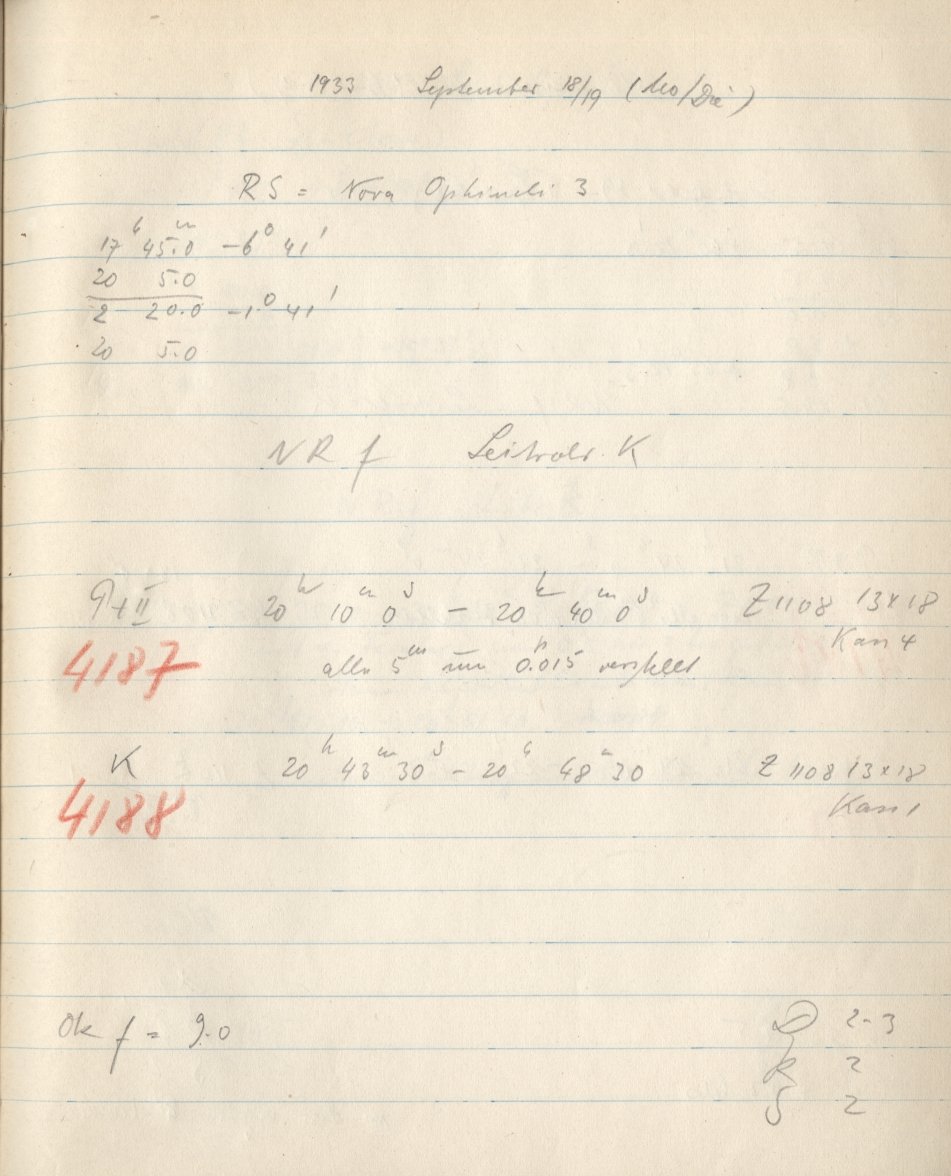 1933 September 18/19 (Mo/Die)
RS = Nova Ophiuchi 3
17h 45m.0 -6° 41'
20 5.0
2 20.0 -1° 41'
20 5.0
NR f Leitrohr K
P + II 20h 10m 0s - 20h 40m 0s Z 1108 13x18
Kass 4
4187 alle 5m um 0h.015 verstellt
K 20h 43m 30s - 20h 48m 30 Z 1108 13x18
4188 Kass 1
Ok f = 9.0 D 2-3
R 2
S 2